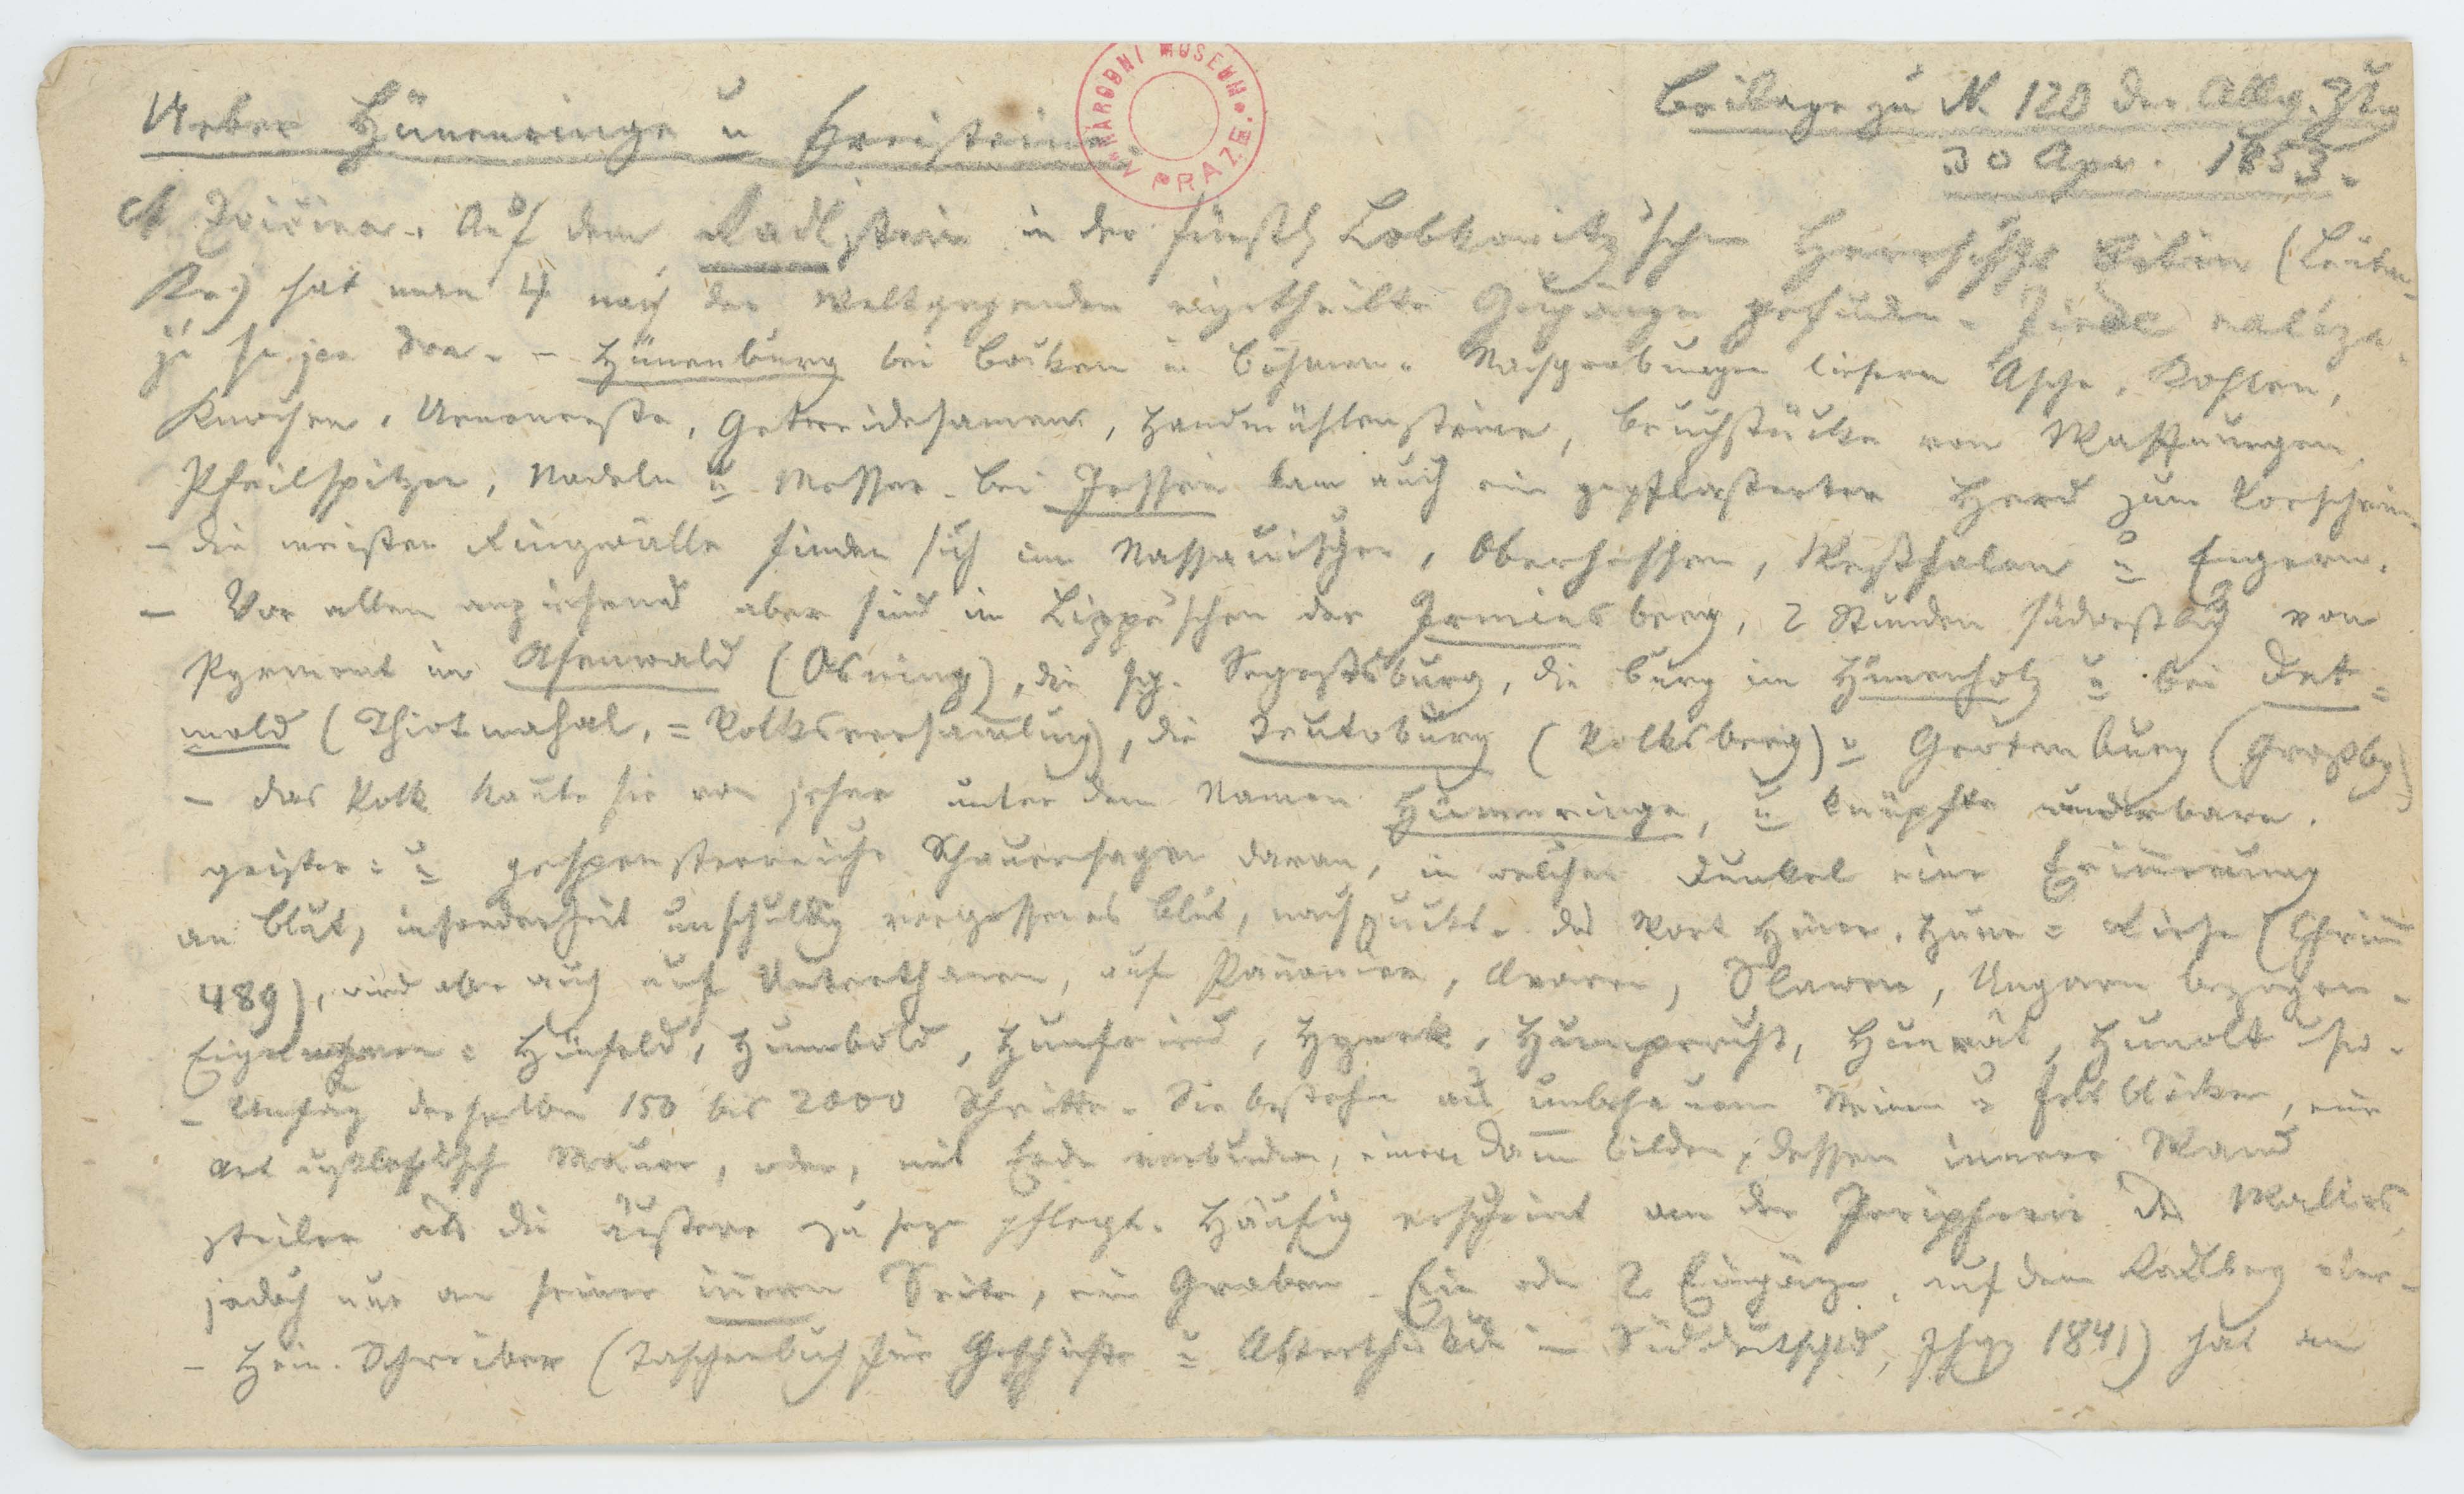 Ueber Hünenringe u Freisteine.
Beilage zu N. 120 der Allg. Ztg
30 Apr. 1853.
NÁRODNÍ MUSEUM V PRAZE.
Auf dem Radlstein in der fürstl Lobkowitz'schen Herrschaft Bilin (Leitm.
Kr.) hat man 4 nach den Weltgegenden eingetheilte Eingänge gefunden.
– Hünenburg bei Bouken in Böhmen. Nachgrabungen liefern Asche, Kohlen,
Knochen, Urnenreste, Getreidesamen, Handmühlensteine, Bruchstücke von Waffnungen
Pfeilspitzen, Nadeln u Messer. Bei Jessen kam auch ein gepflasterter Herd zum Vorschein.
– Die meisten Ringwälle finden sich im Nassauischen, Oberhessen, Westfalen u Engern.
– Vor allem anziehend aber sind im Lippe'schen der Irminsberg, 2 Stunden südwestlich von
Pyrmont im Asenwald (Osning), die sg. Segestsburg, die Burg im Hünenholz u bei Det=
mold (Thiotmahal, = Volksversamlung), die Teutoburg (Volksberg) u Grotenburg (Großbg)
– Das Volk kañte sie von jeher unter dem Namen Hünenringe, u knüpfte wunderbare,
geister= u gespensterreiche Schauersagen daran, in welchen dunkel eine Eriñerung
an Blut, insonderheit unschuldig vergossenes Blut, nachzuckt. Das Wort Hüne, Hune = Riese (Grim̃
489), wird aber auch auf Unterthanen, auf Pañonier, Avaren, Slawen, Ungarn bezogen.
Eigennamen = Hünfeld, Humbold, Hunfried, Hynek, Humprecht, Hunrat, Hunolt usw.
– Umfang derselben 150 bis 2000 Schritte. Sie bestehn aus unbehauenen Steinen u Felsblöcken, eine
Art Mauer, oder, mit Erde verbunden, einen Dam̃ bilden, dessen innere Wand
steiler als die äußere zu seyn pflegt. Häufig erscheint an der Peripherie des Walles,
jedoch nur an seiner iñern Seite, ein Graben. Ein oder 2 Eingänge, auf dem Radlberg aber –
– Hein. Schreiber (Taschenbuch für Geschichte u Alterthum in Süddeutschld, Jhrg 1841) hat an